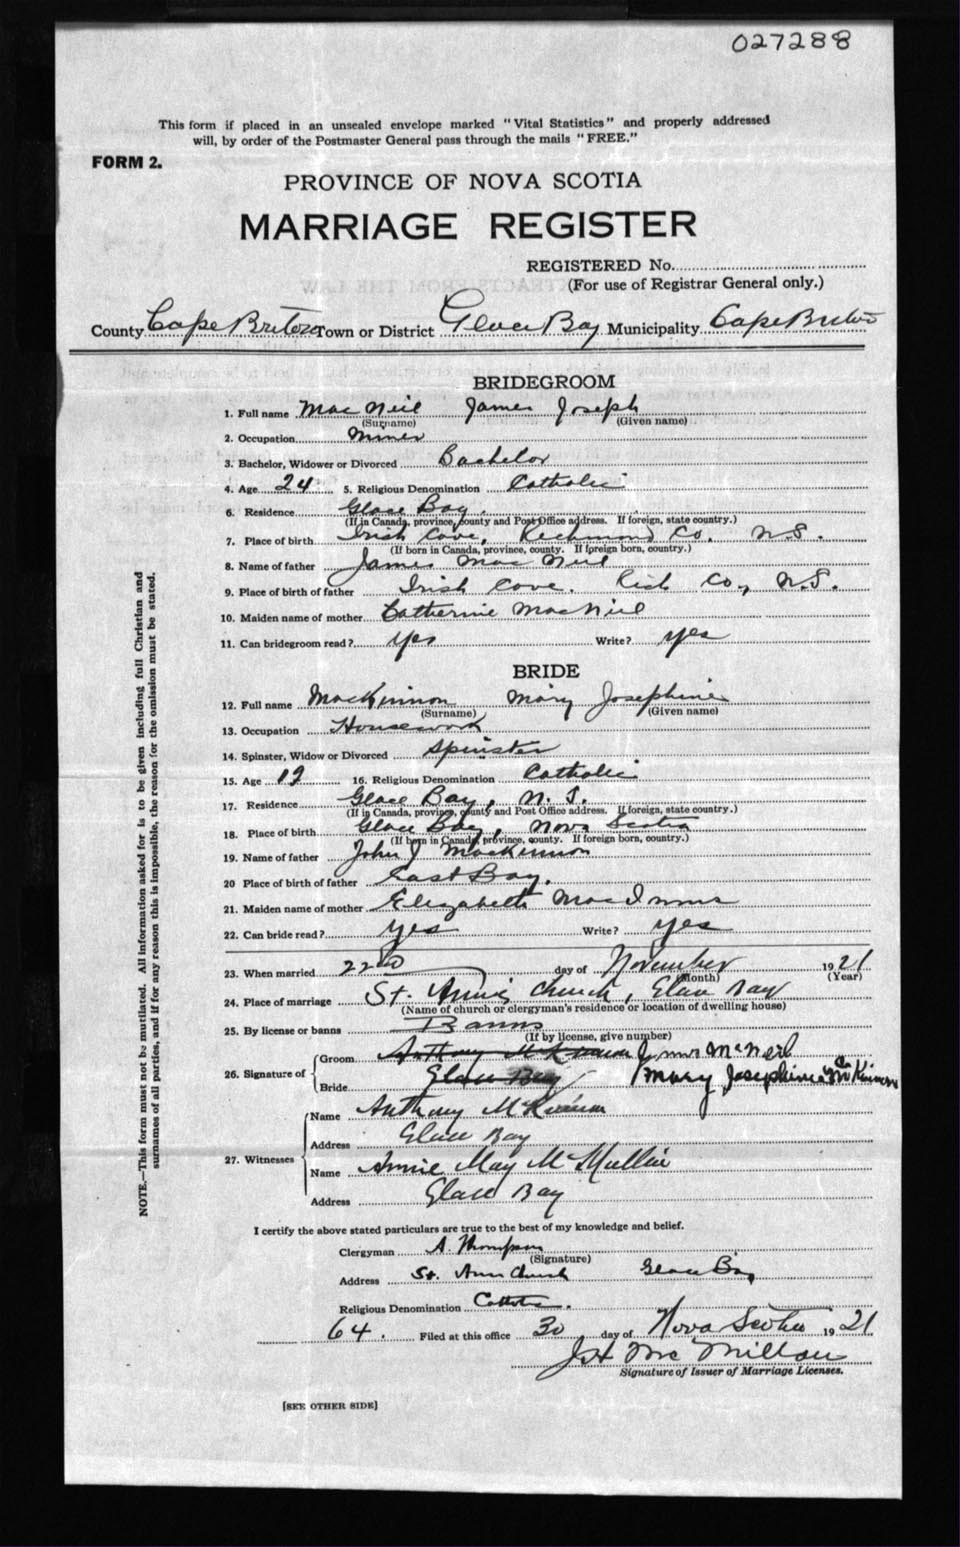 027288
This form if placed in an unsealed envelope marked "Vital Statistics" and properly addressed
will, by order of the Postmaster General pass through the mails "FREE."
FORM 2.
PROVINCE OF NOVA SCOTIA
MARRIAGE REGISTER
REGISTERED No.
(For use of Registrar General only.)
County Cape Breton Town or District Glace Bay Municipality Cape Breton
BRIDEGROOM
1. Full name MacNeil James Joseph
(Surname) (Given name)
2. Occupation Miner
3. Bachelor, Widower or Divorced Bachelor
4. Age 24 5. Religious Denomination Catholic
6. Residence Glace Bay.
(If in Canada, province, county and Post Office address. If foreign, state country.)
7. Place of birth Irish Cove, Richmond Co. N.S.
(If born in Canada, province, county. If foreign born, country.)
8. Name of father James MacNeil
9. Place of birth of father Irish Cove. Rich Co, N.S.
10. Maiden name of mother Catherine MacNeil
11. Can bridegroom read? yes Write? yes
BRIDE
12. Full name MacKinnon Mary Josephine
(Surname) (Given name)
13. Occupation Housework
14. Spinster, Widow or Divorced Spinster
15. Age 19 16. Religious Denomination Catholic
17. Residence Glace Bay, N.S.
(If in Canada, province, county and Post Office address. If foreign, state country.)
18. Place of birth Glace Bay, Nova Scotia
(If born in Canada, province, county. If foreign born, country.)
19. Name of father John J MacKinnon
20 Place of birth of father East Bay.
21. Maiden name of mother Elizabeth MacInnis
22. Can bride read? yes Write? yes
23. When married 22nd day of November 1921
(Month) (Year)
24. Place of marriage St. Ann's Church, Glace Bay
(Name of church or clergyman's residence or location of dwelling house)
25. By license or banns Banns
(If by license, give number)
26. Signature of
Groom Anthony McKinnon James McNeil
Bride Glace Bay Mary Josephine McKinnon
27. Witnesses
Name Anthony McKinnon
Address Glace Bay
Name Annie May McMullin
Address Glace Bay
I certify the above stated particulars are true to the best of my knowledge and belief.
Clergyman A. Thompson
(Signature)
Address St. Ann Church Glace Bay
Religious Denomination Catholic.
64. Filed at this office 30 day of Nova Scotia 1921
McMillan
Signature of Issuer of Marriage Licenses.
[SEE OTHER SIDE]
NOTE.—This form must not be mutilated. All information asked for is to be given including full Christian and
surnames of all parties, and if for any reason this is impossible, the reason for the omission must be stated.